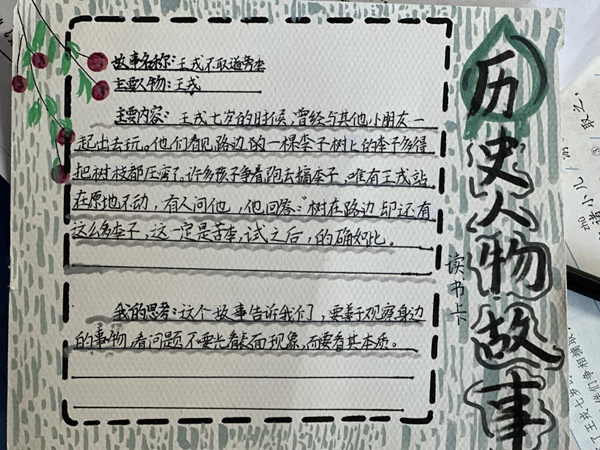 历史人物故事
读书卡
故事名称：王戎不取道旁李
主要人物：王戎
主要内容：王戎七岁的时候，曾经与其他小朋友一
起出去玩。他们看见路边的一棵李子树上的李子多得
把树枝都压弯了。许多孩子争着跑去摘李子，唯有王戎站
在原地不动，有人问他，他回答："树在路边却还有
这么多李子，这一定是苦李，试之后，的确如此。
我的思考：这个故事告诉我们，要善于观察身边
的事物，看问题不要光看表面现象，而要看其本质。